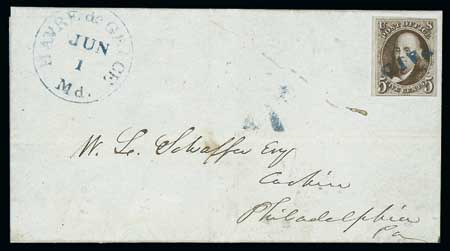 HAVRE de GRACE
JUN
1
Md.
POST OFFICE
5 FIVE CENTS 5
W. L. Schaffer Esq
Cashier
Philadelphia
Pa